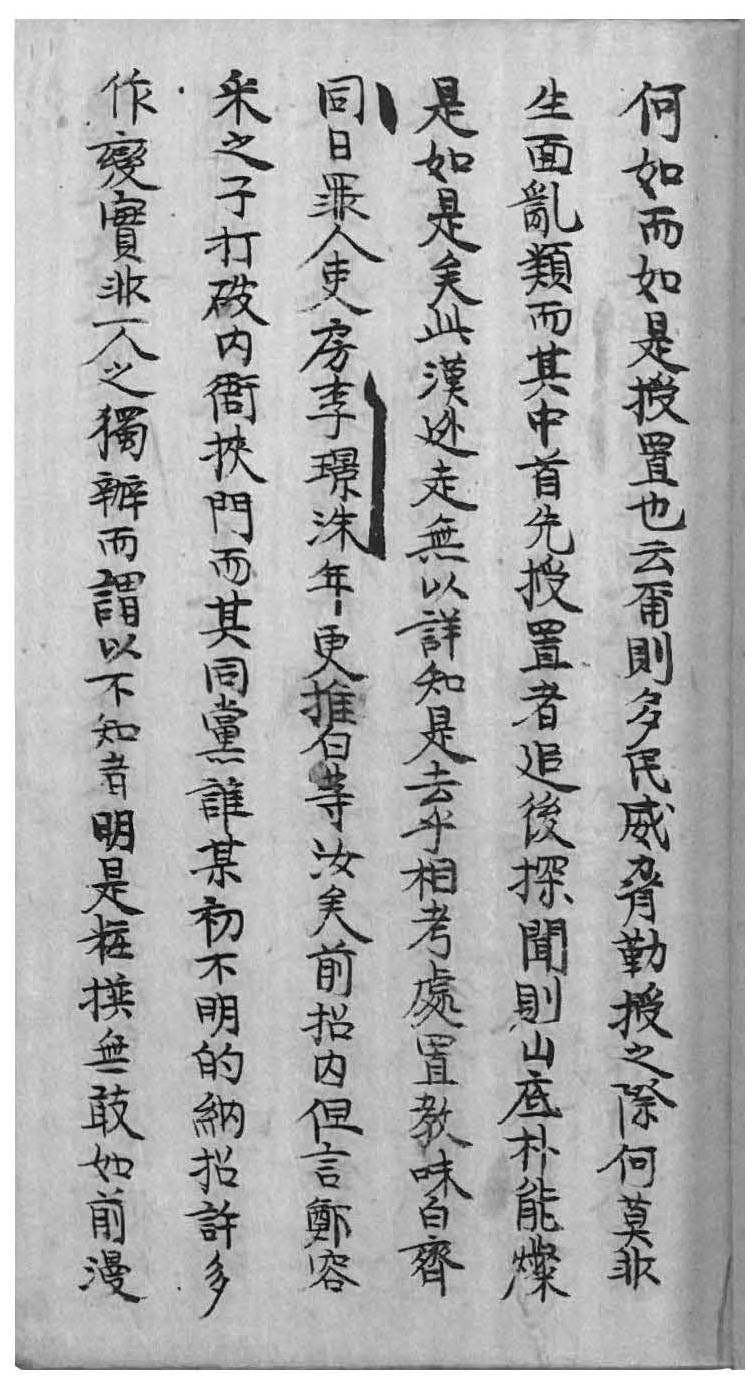 何如而如是授置也云爾則多民威脅勤授之際何莫非
生面亂類而其中首先授置者追後探聞則山底朴能燦
是如是矣此漢迯走無以詳知是去乎相考處置教味白齊
同日罪人吏房李璟洙年更推白等汝矣前招內但言鄭容
釆之子打破內衙挾門而其同黨誰某初不明的納招許多
作變實非一人之獨辦而謂以不知者明是粧撰無敢如前漫